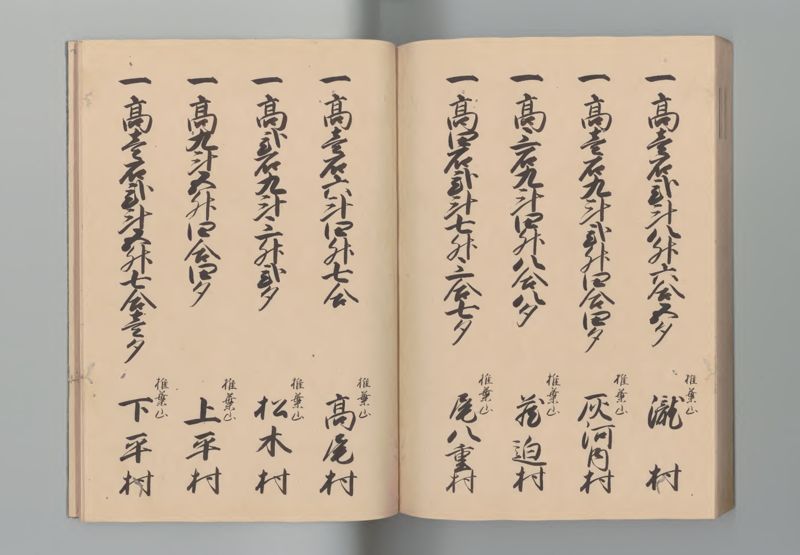 一高壱石弐斗八升六合五夕
椎葉山
瀧村
一高壱石九斗弐升四合四夕
椎葉山
灰河内村
一高三石九斗四升八合八夕
椎葉山
迫村
一高四石弐斗七升三合七夕
椎葉山
尾八重村
一高壱石六斗四升七合
椎葉山
高尾村
一高弐石九斗三升弐夕
椎葉山
松木村
一高九斗五升四合四夕
椎葉山
上平村
一高壱石弐斗五升七合壱夕
椎葉山
下平村